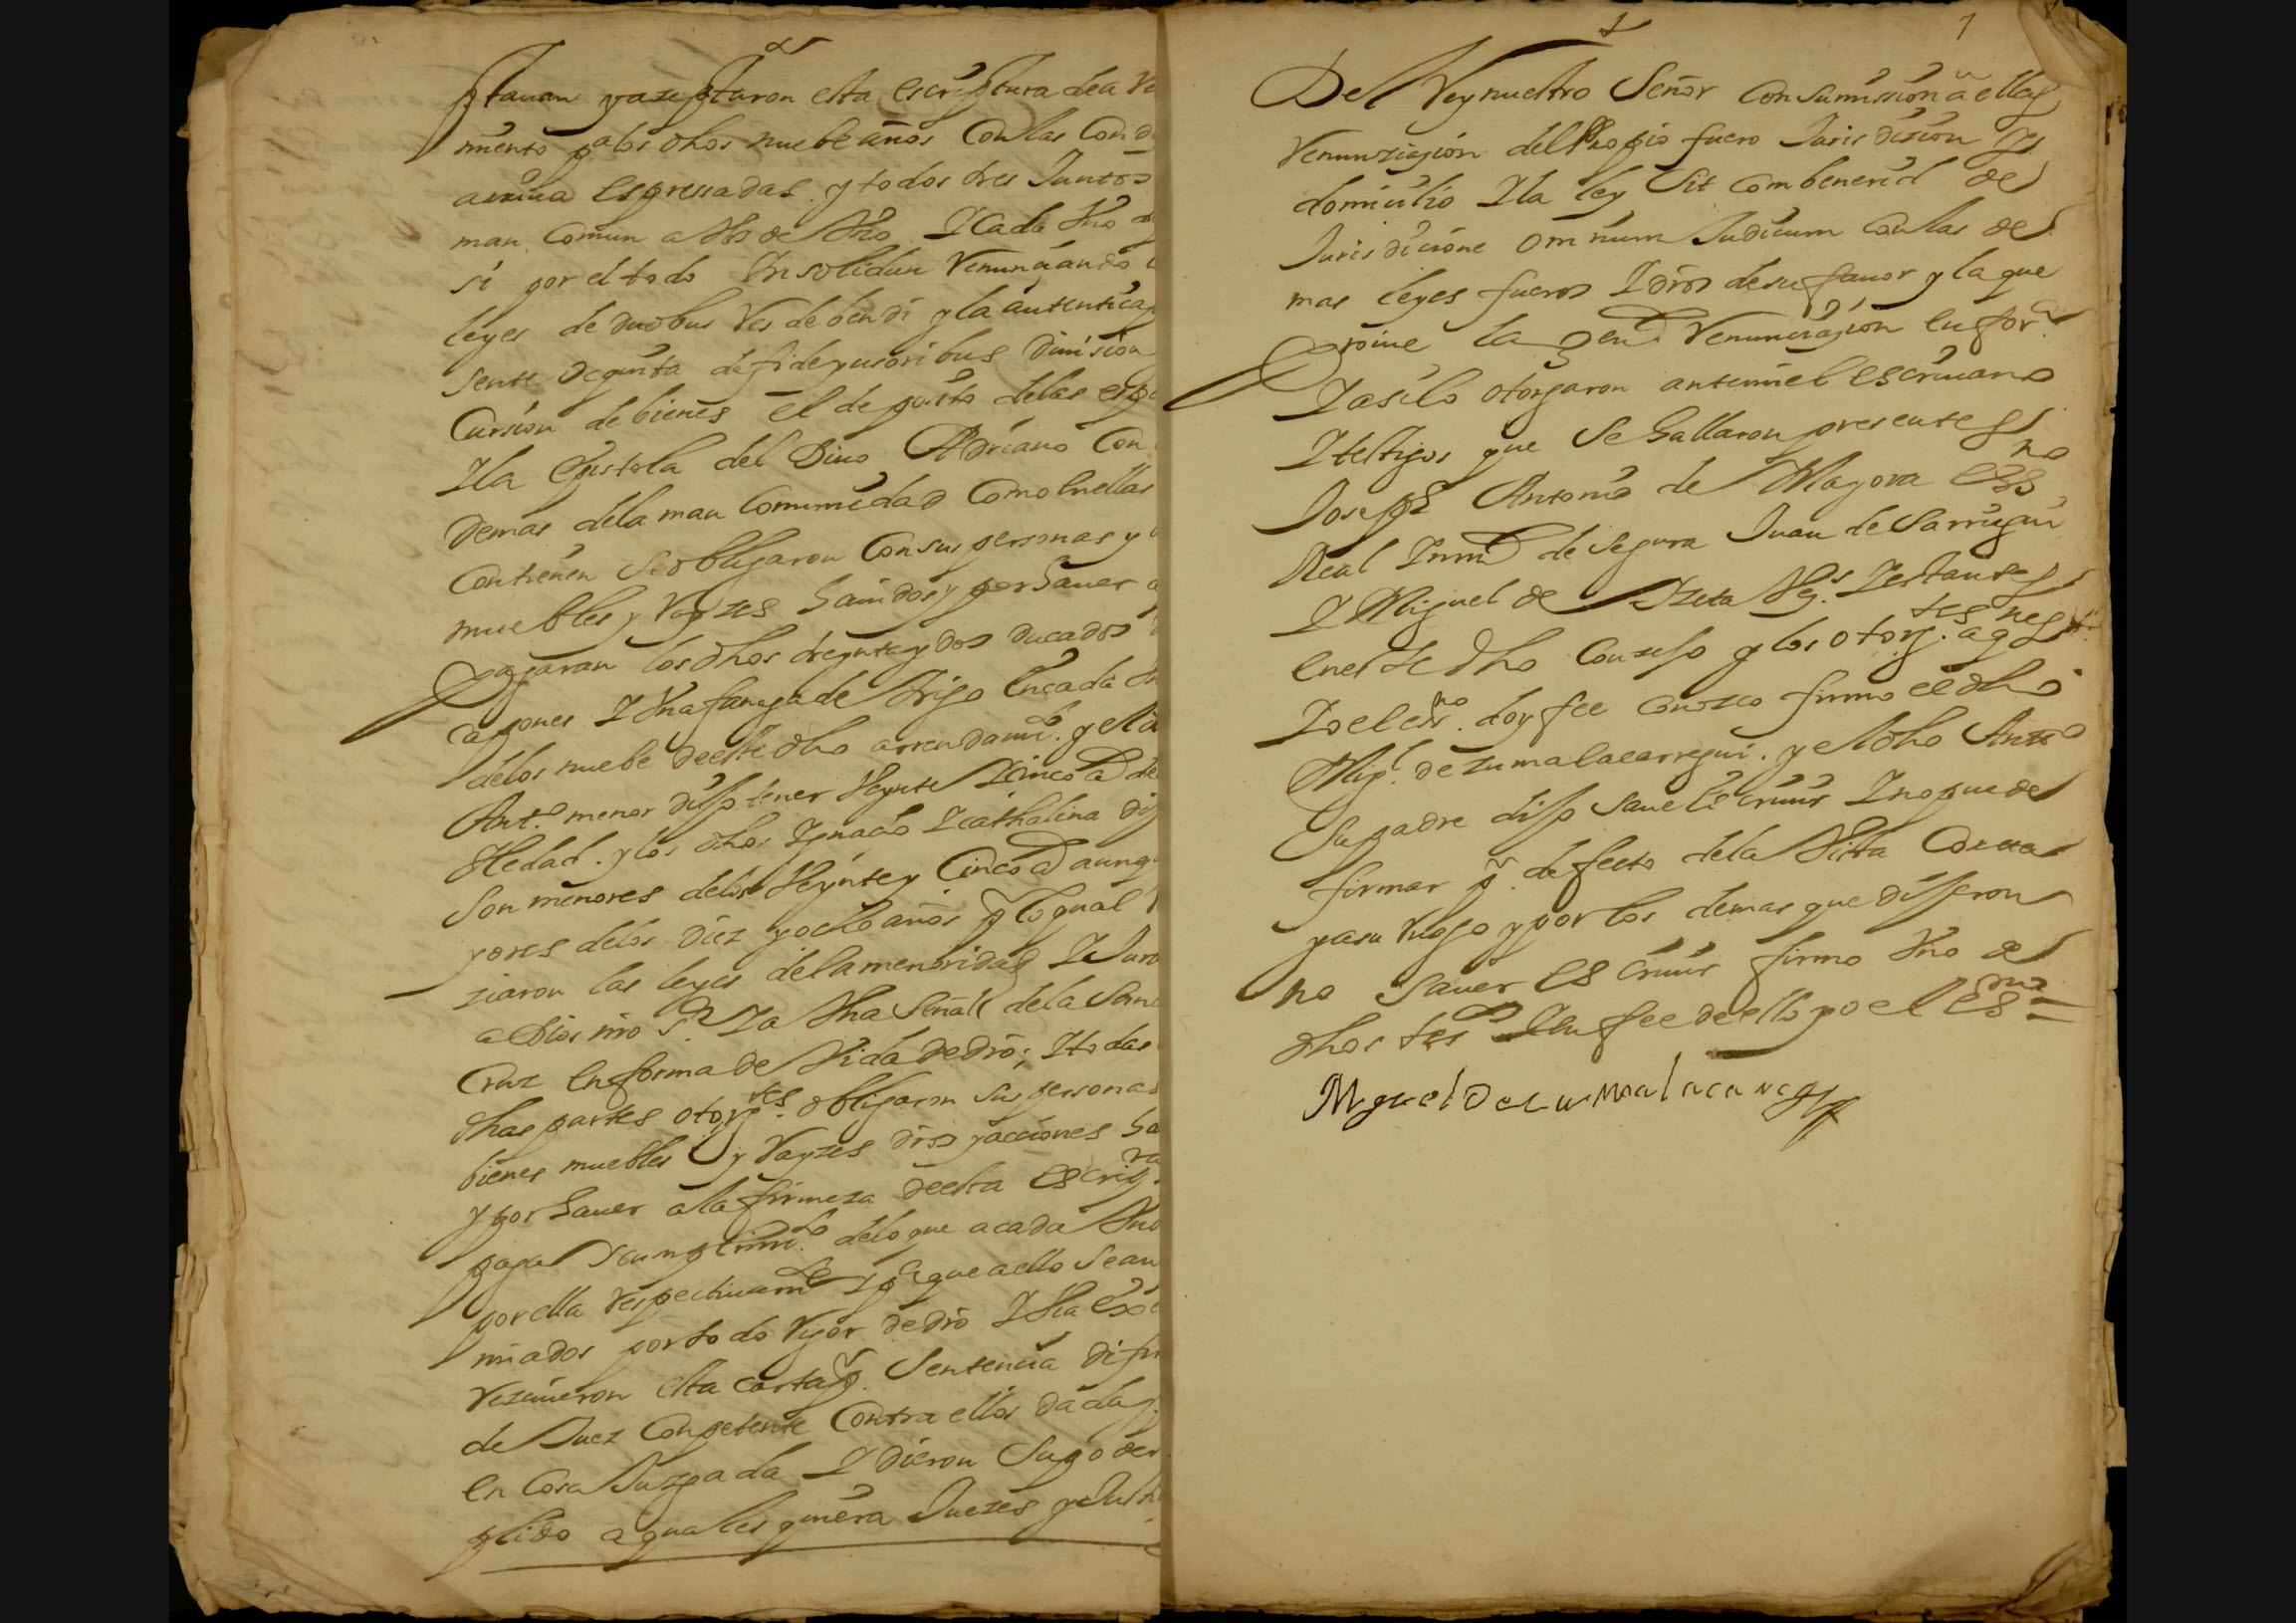 ptauan y azeptaron esta escriptura de a Ve
miento pa los dhos nuebe años Con las Condi
arriua espressadas y todos tres Juntos
man Comun a Vos de Vno I Cada Vno de
si por el todo In solidun Renunciando
leyes de duobus Res debendi y la autentica
sente oc quita de fideyusoribus Diuision
Cursion de bienes el deposito de las espe
I la Epistola del Diuo Adriano Con
Demas de la man Comunidad Como en ellas
Contienen Se obligaron Con sus personas y
muebles y Rayzes hauidos y por hauer
Pagaran los dhos treynta y dos ducados
capones I Vna fanega de trigo en cada Vn
de los nuebe de este dho arrendamto. y el dho
Anto. menor dijo tener Veynte I Cinco a de
Hedad. y los dhos Ygnacio I Cathalina
Son menores de los Veynte y Cinco a aunq
yores de los diez y ocho años p lo qual
ziaron las leyes de la menoridad I Juro
a Dios nro Sr I a Vna Señal de la Sant
Cruz en forma de Vida de dro; I todas
dhas partes otorgtes. obligaron sus personas
bienes muebles y Rayzes dros y acciones ha
y por hauer a la firmeza de esta escripra.
paga I cumplimto. de lo que a cada Vno
por ella Respectiuamte I pa que a ello Sean
miados por todo Rigor de dro I Via
Reziuieron esta carta pr. Sentencia difi
de Juez Conpetente Contra ellos dada
en Cosa Juzgada I dieron Su poder
plido a qualesquiera Juezes y Justi
1
Del Rey nuestro Señor Con Sumission a ellas
Renunziazion del Propio fuero Jurisdizion
domicilio I la ley Sit Combenerid de
Jurisdicione Omnium Judicum Con las de
mas leyes fueros I dros de su fauor y la que
Proiue la genl Renunciazion en forma
I asi lo otorgaron ante mi el escriuano
I testigos que Se hallaron presentes
Joseph Antonio de Mayora essno
Real I nrul de Segura Juan de Larrugain
I Miguel de Vzeta Vos. I estantes
en este dho Conzejo y los otorgtes. a q nes
Io el esno. doy fee Conozco firmo el dho
Migl. de Zumalacarregui. y el dho Anto
Su padre dijo Saue escriuir I no puede
firmar pr. defecto de la Vista Corta
y a su Ruego y por los demas que dijeron
no Sauer escriuir firmo Vno de
dhos tes I en fee de ello yo el Esno =
Miguel De Cumalacaregi